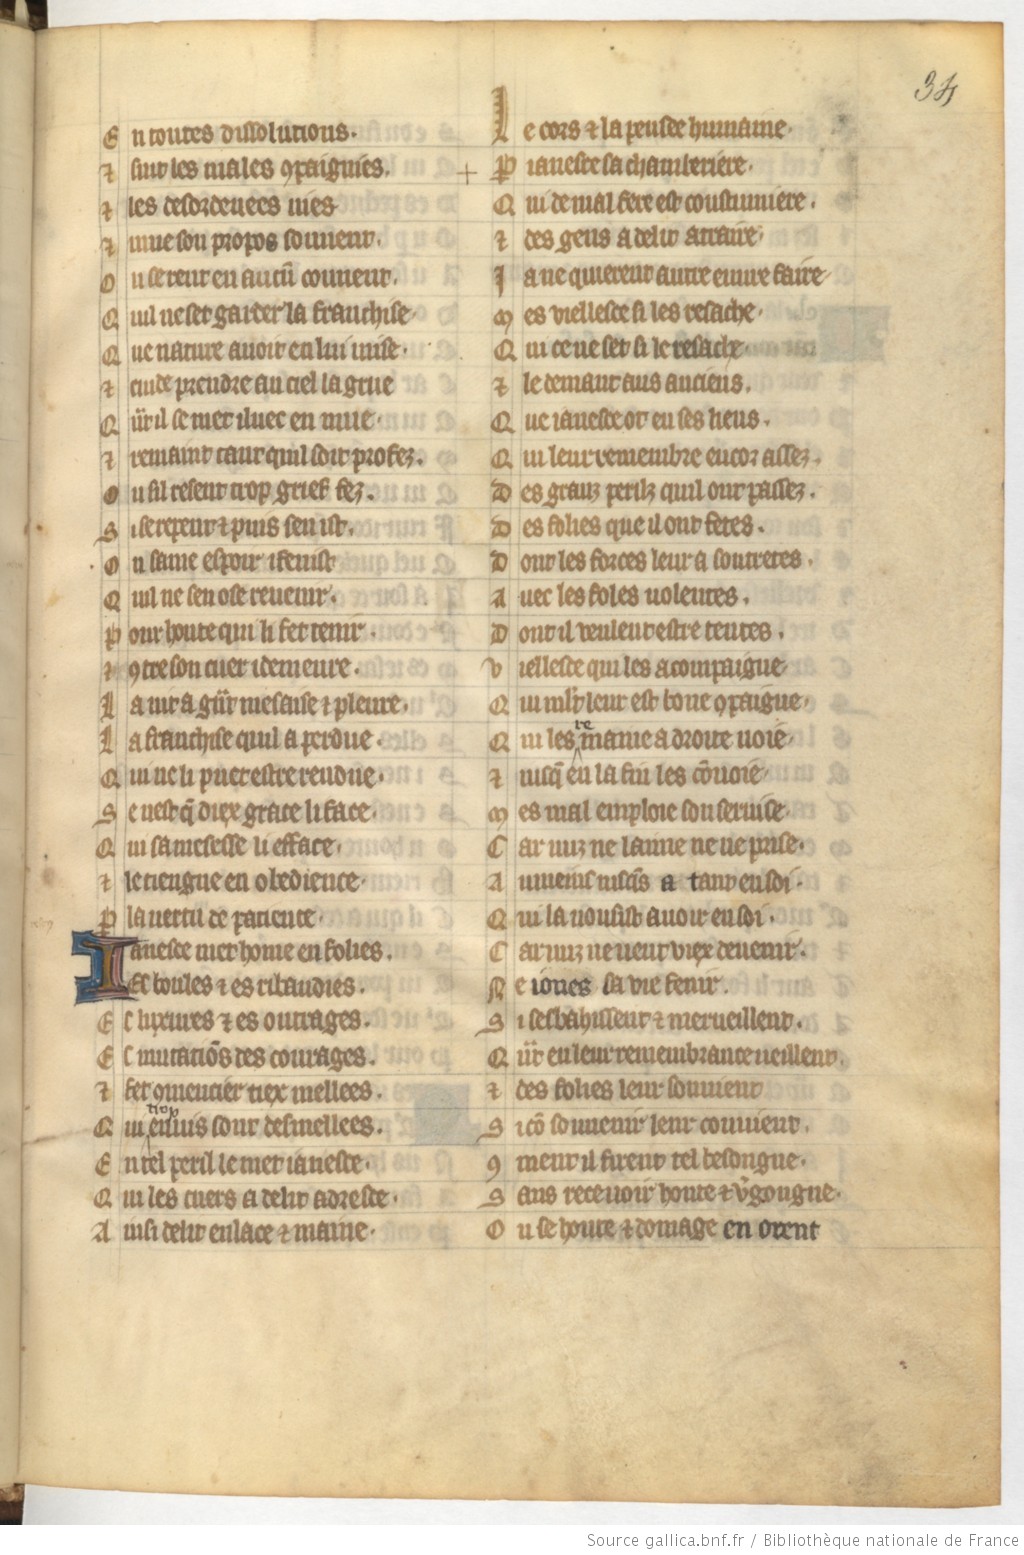 34
En toutes dissolutions.
⁊ suit les males ꝯpaignies.
⁊ les desordenees uies
⁊ mue son propos souuent.
Ou se rent en aucũ couuent.
Quil ne set garder la franchise.
Que nature auoit en lui mise.
⁊ cuide prendre au ciel la grue
Qũt il se met iluec en mue.
⁊ remaint tant quil soit profez.
Ou sil resent trop grief fez.
Si se repent ⁊ puis sen ist.
Ou sa uie espoir i fenist
Quil ne sen ose reuenir.
Pour honte qui li fet tenir.
⁊ ꝯtre son cuer i demeure.
La uit a gũt mesaise ⁊ pleure.
La franchise quil a perdue.
Qui ne li puet estre rendue.
Se nest q̃ diex grace li face.
Qui sa mesesse li efface.
⁊ le tiengue en obedience.
P la uertu de pacience.
Iãneste met home en folies.
Es boules ⁊ es ribaudies.
Es luxures ⁊ es outrages.
Es mutaciõs des courages.
⁊ fet ꝯmencier tiex mellees.
Qui trop enuis sont desmellees.
En tel peril le met ianeste.
Qui les cuers a delit adreste.
Ainsi delit enlace ⁊ maine.
Le cors ⁊ la pensee humaine.
P ianeste sa chamberiere.
Qui de mal fere est coustumiere.
⁊ des gens a delit atraire.
Ia ne quierent autre euure faire.
Mes viellesce si les resache.
Qui ce ne set si le resache.
⁊ le demant aus anciens.
Que ianeste ot en ses liens.
Qui leur remembre encor assez.
Des granz perilz quil ont passez.
Des folies que il ont fetes.
Dont les forces leur a soutretes.
Auec les foles uolentes.
Dont il seulent estre tentes.
Viellesce qui les acompaigne
Qui ml't leur est bone ꝯpaigne.
Qui les remaine a droite uoie.
⁊ iusq̃ en la fin les cõuoie.
Mes mal emploie son seruise.
Car nuz ne laime ne ne prise.
Au meins iusq̃s a tant en soi.
Qui la uousist auoir en soi.
Car nuz ne ueut viex deuenir.
Ne iones sa vie fenir.
Si sesbahissent ⁊ merueillent.
Qũt en leur remembrance ueillent.
⁊ des folies leur souuient
Si cõ souuenir leur couuient.
ꝯment il firent tel besongue.
Sans receuoir honte ⁊ ṽgongne.
Ou se honte ⁊ domage en orent
Source gallica.bnf.fr / Bibliothèque nationale de France